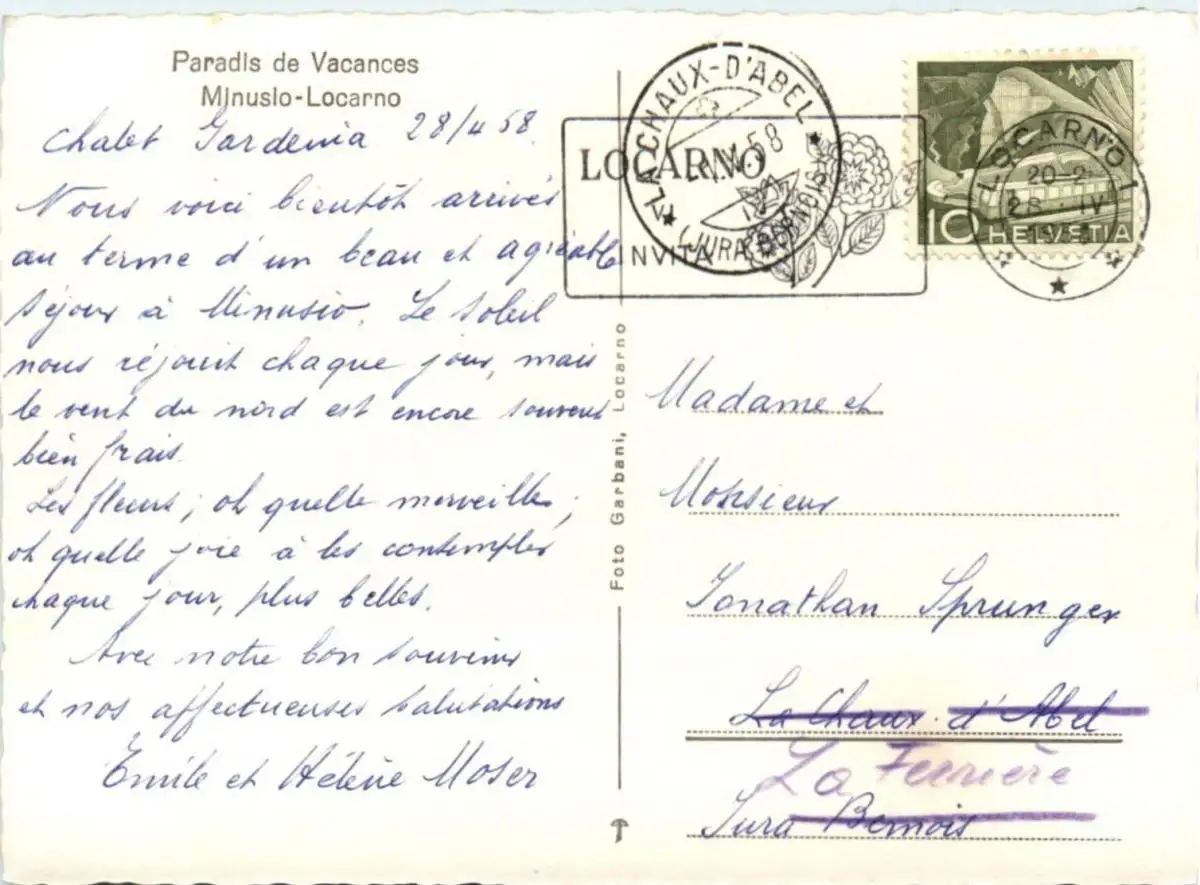 Paradis de Vacances
Minusio-Locarno
Chalet Gardenia 28/4 58.
Nous voici bientôt arrivés
au terme d'un beau et agréable
séjour à Minusio. Le soleil
nous réjouit chaque jour, mais
le vent du nord est encore souvent
bien frais.
Les fleurs; oh quelle merveille;
oh quelle joie à les contempler
chaque jour, plus belles.
Avec notre bon souvenir
et nos affectueuses salutations
Emile et Hélène Moser
Foto Garbani, Locarno
LA CHAUX-D'ABEL
(JURA BERNOIS)
58
LOCARNO
VI INVITA
10 HELVETIA
LOCARNO 1
20-2
28. IV
Madame et
Monsieur
Jonathan Sprunger
La Chaux d'Abel
La Ferrière
Jura Bernois